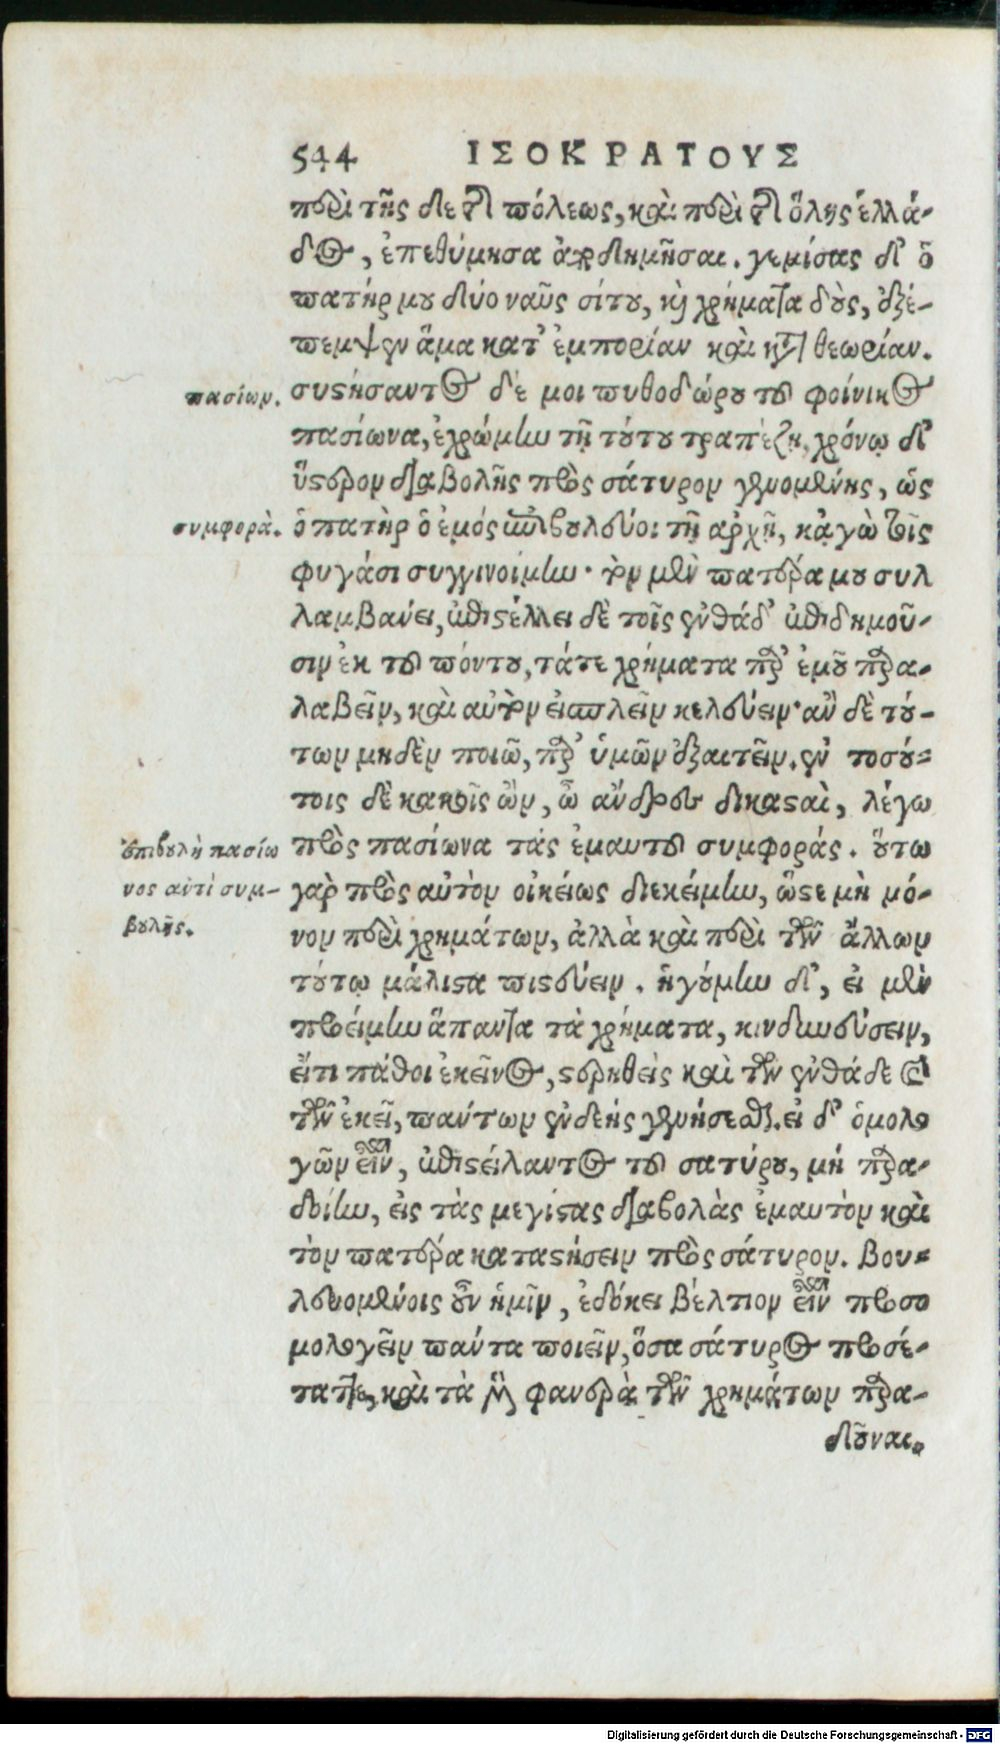 544 ΙΣΟΚΡΑΤΟΥΣ
περὶ τῆς δε τῆς πόλεως, καὶ περὶ τῆς ὅλης ἑλλά-
δος, ἐπεθύμησα ἀποδημῆσαι. γεμίσας δ' ὁ
πατήρ μου δύο ναῦς σίτου, καὶ χρήματα δοὺς, ἐξέ-
πεμψεν ἅμα κατ' ἐμπορίαν καὶ κατὰ θεωρίαν.
πασίων.
συστήσαντος δέ μοι πυθοδώρου τοῦ φοίνικος
πασίωνα, ἐχρώμην τῇ τούτου τραπέζῃ, χρόνῳ δ'
ὕστερον διαβολῆς πρὸς σάτυρον γενομένης, ὡς
συμφορὰ.
ὁ πατὴρ ὁ ἐμός ἐπιβουλεύοι τῇ ἀρχῇ, κᾀγὼ τοῖς
φυγάσι συγγινοίμην· τὸν μὲν πατέρα μου συλ
λαμβάνει, ἐπιστέλλει δὲ τοῖς ἐνθάδ' ἐπιδημοῦ-
σιν ἐκ τοῦ πόντου, τάτε χρήματα παρ' ἐμοῦ παρα-
λαβεῖν, καὶ αὐτὸν εἰσπλεῖν κελεύειν· ἂν δὲ τού-
των μηδὲν ποιῶ, παρ' ὑμῶν ἐξαιτεῖν. ἐν τοσού-
τοις δὲ κακοῖς ὢν, ὦ ἄνδρες δικασταὶ, λέγω
ἐπιβουλὴ πασίω
νος ἀντὶ συμ-
βουλῆς.
πρὸς πασίωνα τὰς ἐμαυτοῦ συμφοράς. οὕτω
γὰρ πρὸς αὐτὸν οἰκείως διεκείμην, ὥστε μὴ μό-
νον περὶ χρημάτων, ἀλλὰ καὶ περὶ τῶν ἄλλων
τούτῳ μάλιστα πιστεύειν. ἡγούμην δ', εἰ μὲν
προείμην ἅπαντα τὰ χρήματα, κινδυνεύσειν,
εἴτι πάθοι ἐκεῖνος, στερηθεὶς καὶ τῶν ἐνθάδε καὶ
τῶν ἐκεῖ, πάντων ἐνδεής γενήσεσθαι. εἰ δ' ὁμολο
γῶν εἶναι, ἐπιστείλαντος τοῦ σατύρου, μή παρα-
δοίην, εἰς τὰς μεγίστας διαβολὰς ἐμαυτὸν καὶ
τὸν πατέρα καταστήσειν πρὸς σάτυρον. βου-
λευομένοις οὖν ἡμῖν, ἐδόκει βέλτιον εἶναι προσο
μολογεῖν πάντα ποιεῖν, ὅσα σάτυρος προσέ-
ταττε, καὶ τὰ μὲν φανερὰ τῶν χρημάτων παρα-
δοῦναι.
Digitalisierung gefördert durch die Deutsche Forschungsgemeinschaft - DFG